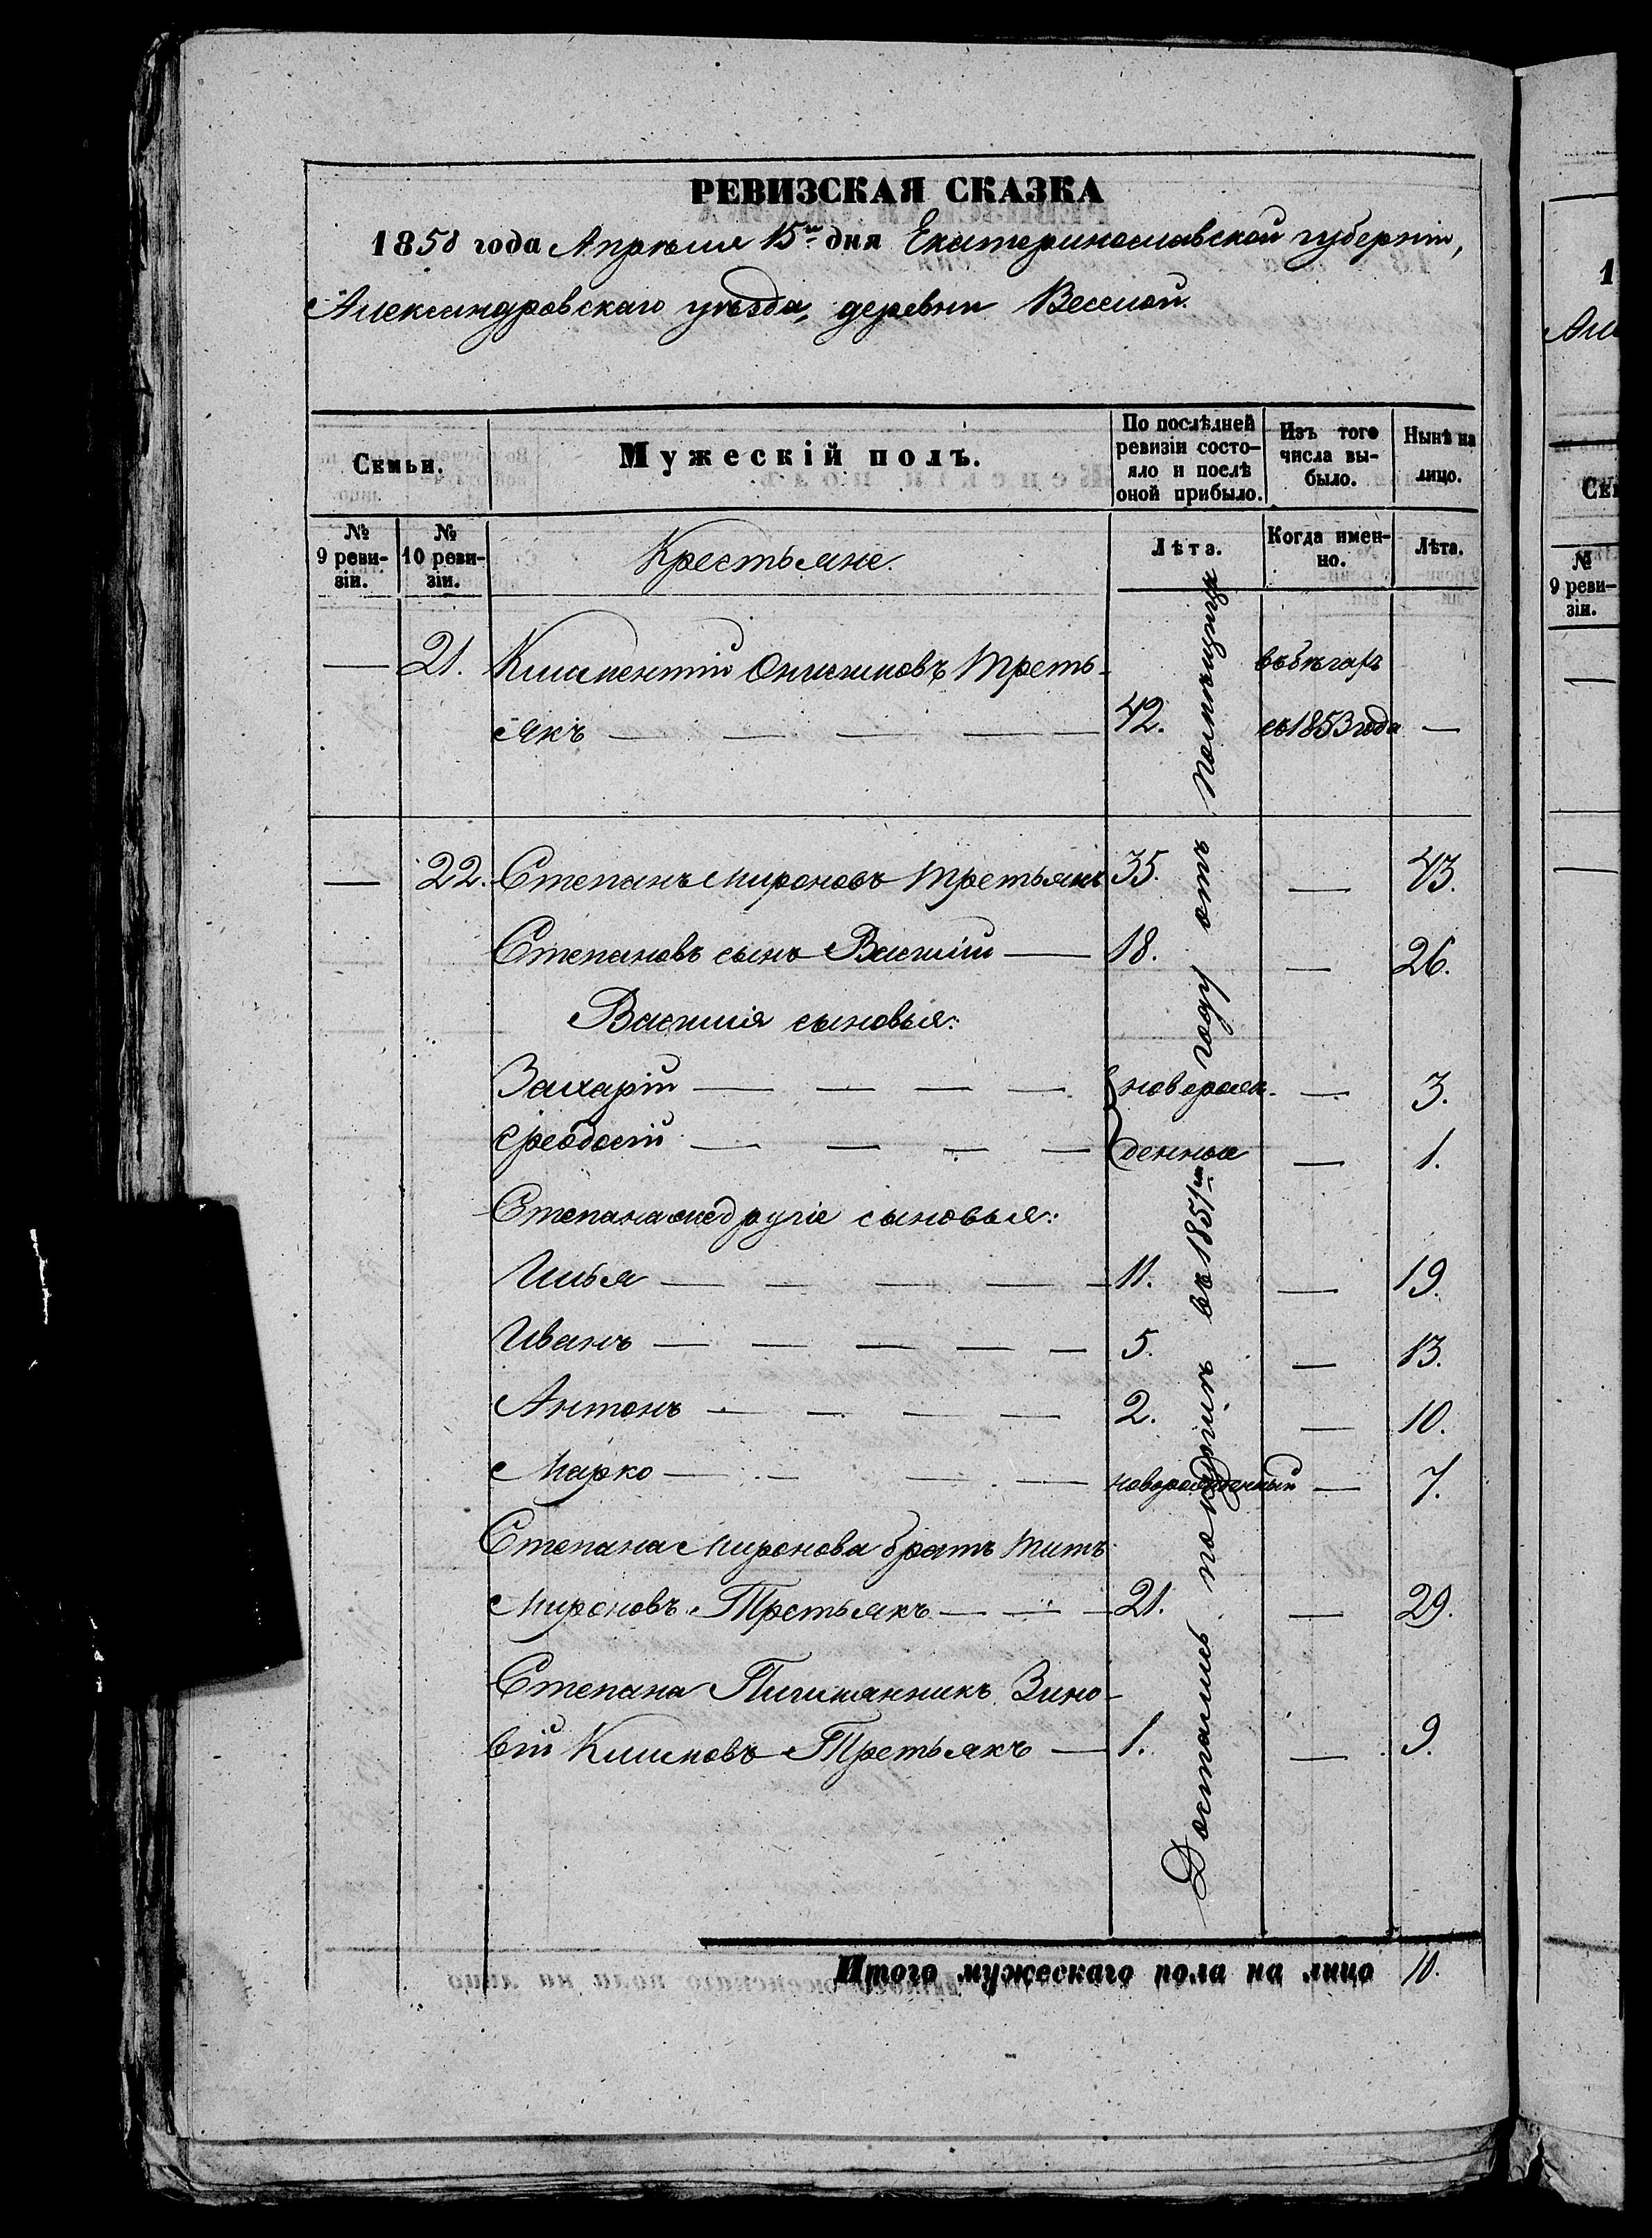 РЕВИЗСКАЯ СКАЗКА
1858 года Апрѣля 15го дня Екатеринославской губерніи,
Александровскаго уѣзда, деревни Веселой.
Семьи.
Мужескій полъ.
По послѣдней ревизіи состояло и послѣ оной прибыло.
Изъ того числа выбыло.
Нынѣ на лицо.
№ 9 ревизіи.
№ 10 ревизіи.
Крестьяне.
Лѣта.
Когда именно.
Лѣта.
— 21. Климентій Онисимовъ Треть- въ бѣгахъ
якъ — — — — — 42. съ 1853 года —
— 22. Степанъ Мироновъ Третьякъ 35. — 43.
Степановъ сынъ Василій — 18. — 26.
Василія сыновья:
Захарій — — — — новорож- — 3.
Феодосій — — — — денные — 1.
Степана же другіе сыновья:
Илья — — — — — 11. — 19.
Иванъ — — — — — 5. — 13.
Антонъ — — — — 2. — 10.
Марко — — — — новорожденный — 7.
Степана Миронова братъ Титъ
Мироновъ Третьякъ — — — 21. — 29.
Степана Племянникъ Зино-
вій Климовъ Третьякъ — 1. — 9.
Достались по купчімъ въ 1851мъ году отъ Помѣщица
Итого мужескаго пола на лицо 10.
1
Але
Сем
№ 9 ревизіи.